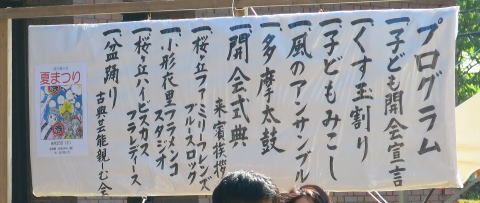 プログラム
一、子ども開会宣言
一、くす玉割り
一、子どもみこし
一、風のアンサンブル
一、多摩太鼓
一、開会式典
来賓挨拶
一、桜ヶ丘ファミリーフレンズ
ブルースロック
一、小形衣里フラメンコ
スタジオ
一、桜ヶ丘ハイビスカス
フラレディース
一、盆踊り
古典芸能親しむ会
夏まつり